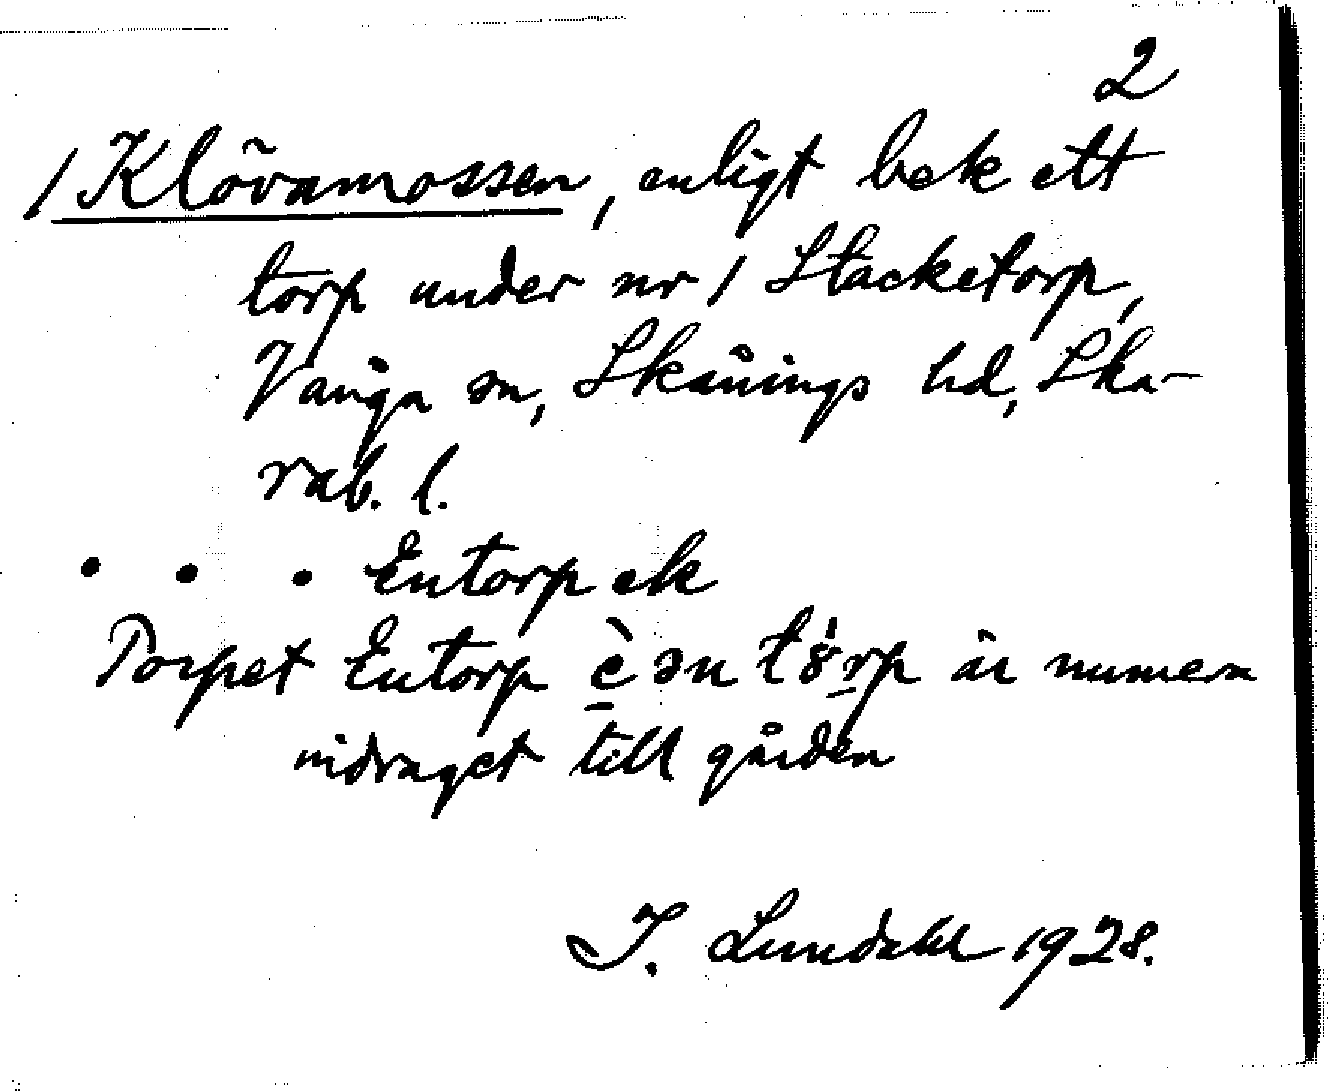 2
/ Klövamossen, enligt bek ett
torp under nr 1 Stacketorp,
Vånga sn, Skånings hd, Ska-
rab. l.
. . . Entorp ek
Torpet Entorp är numera
indraget till gården
I. Lundahl 1928.